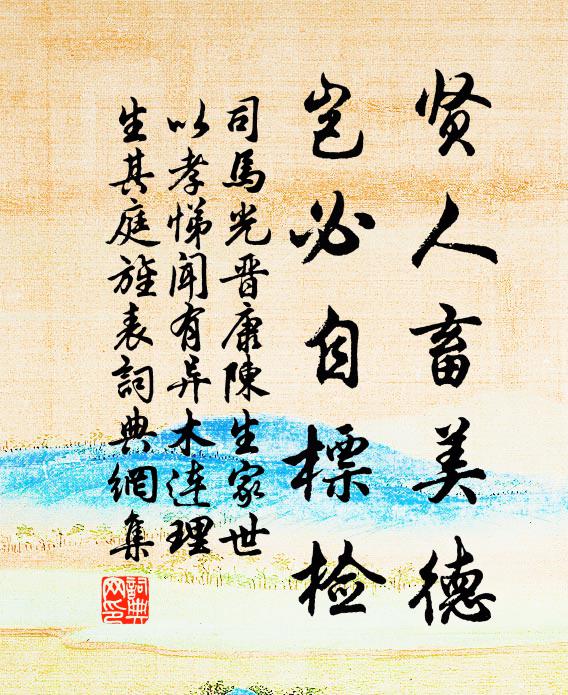 贤人畜美德
岂必自標检
司馬光晋康陳生家世
以孝悌闻有异木连理
生其庭旌表詞典網集
詞典网印